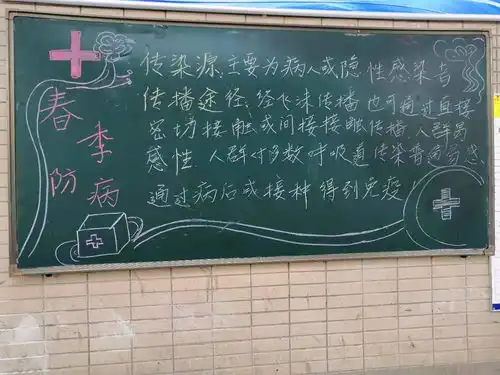 春季防病
传染源:主要为病人或隐性感染者
传播途径:经飞沫传播也可通过直接
密切接触或间接接触传播.人群易
感性:人群对多数呼吸道传染普遍易感.
通过病后或接种得到免疫!